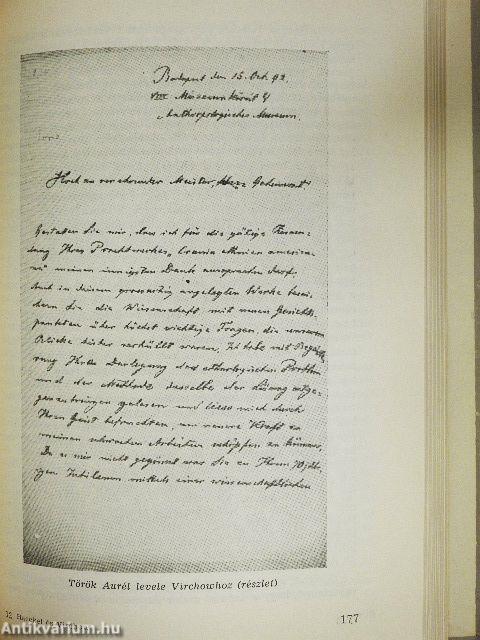 Budapest den 15. Oct. 92.
VIII Múzeumkörút 4
Anthropologisches Museum.
Hoch zu verehrender Meister, Herr Geheimrat
Gestatten Sie mir, dass ich für die gütige
dung Ihres Prachtwerkes, Crania Ethnica america-
na meinen innigsten Dank aussprechen darf.
Auch in diesem grossartig angelegten Werke berei-
chern Sie die Wissenschaft mit neuen Gesichts-
punkten über höchst wichtige Fragen, die unseren
Blicke bisher verhüllt waren. Ich habe mit
rung Ihre Darlegung des ethnologischen Problem
und der Methode dasselbe der Lösung entge-
genzubringen gelesen und liess mich durch
Ihren Geist befruchten, um neuere Kraft zu
meinen schwachen Arbeiten schöpfen zu können.
Da es mir nicht gegönnt war Sie zu Ihrem 70 jäh-
rigen Jubiläum mittels einer wissenschaftlichen
Török Aurél levele Virchowhoz (részlet)
12 Haeckel és
177
Antikvarium.hu